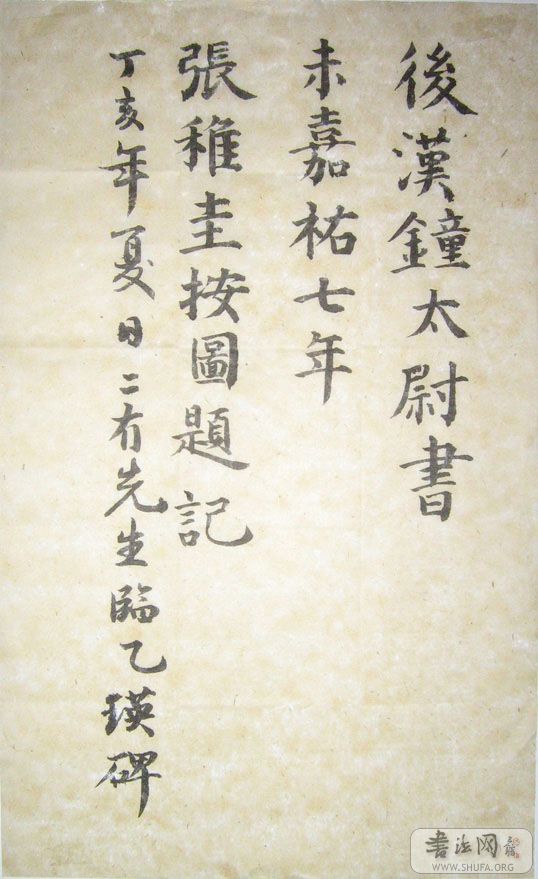 後漢鐘太尉書
未嘉祐七年
張稚圭按圖題記
丁亥年夏日二有先生臨乙瑛碑
書法网
WWW.SHUFA.ORG